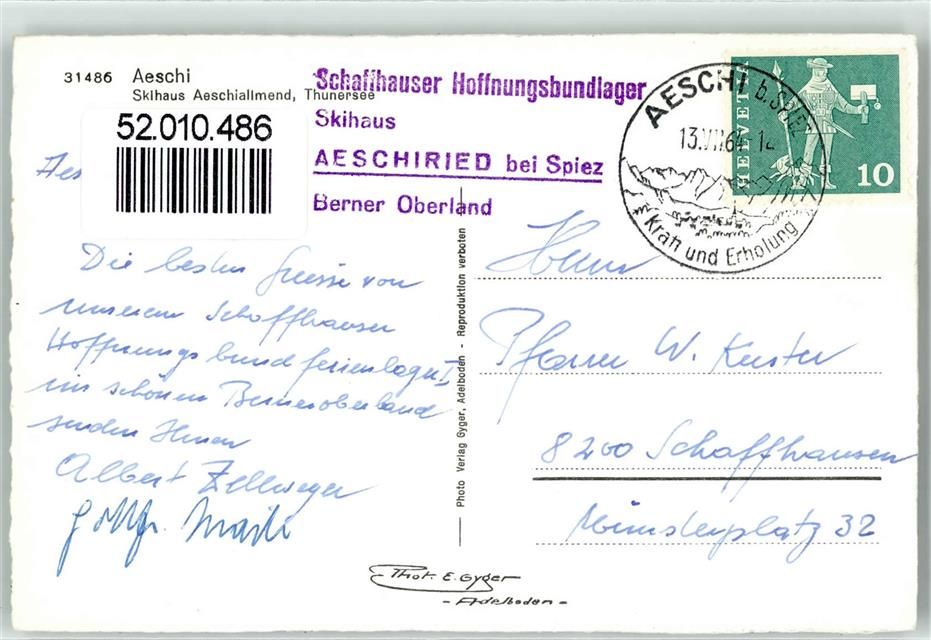 31486 Aeschi
Skihaus Aeschiallmend, Thunersee
52.010.486
Schaffhauser Hoffnungsbundlager
Skihaus
AESCHIRIED bei Spiez
Berner Oberland
AESCHI b. SPIEZ
13.VII.64-12
Kraft und Erholung
HELVETIA
10
Aes
Die besten Grüsse von
unserem Schaffhauser
Hoffnungsbundferienlager I
im schönen Berneroberland
senden Ihnen
Albert Zellweger
Photo Verlag Gyger, Adelboden - Reproduktion verboten
Herrn
Pfarrer W.
8200 Schaffhausen
Münsterplatz 32
Phot. E. Gyger
- Adelboden -